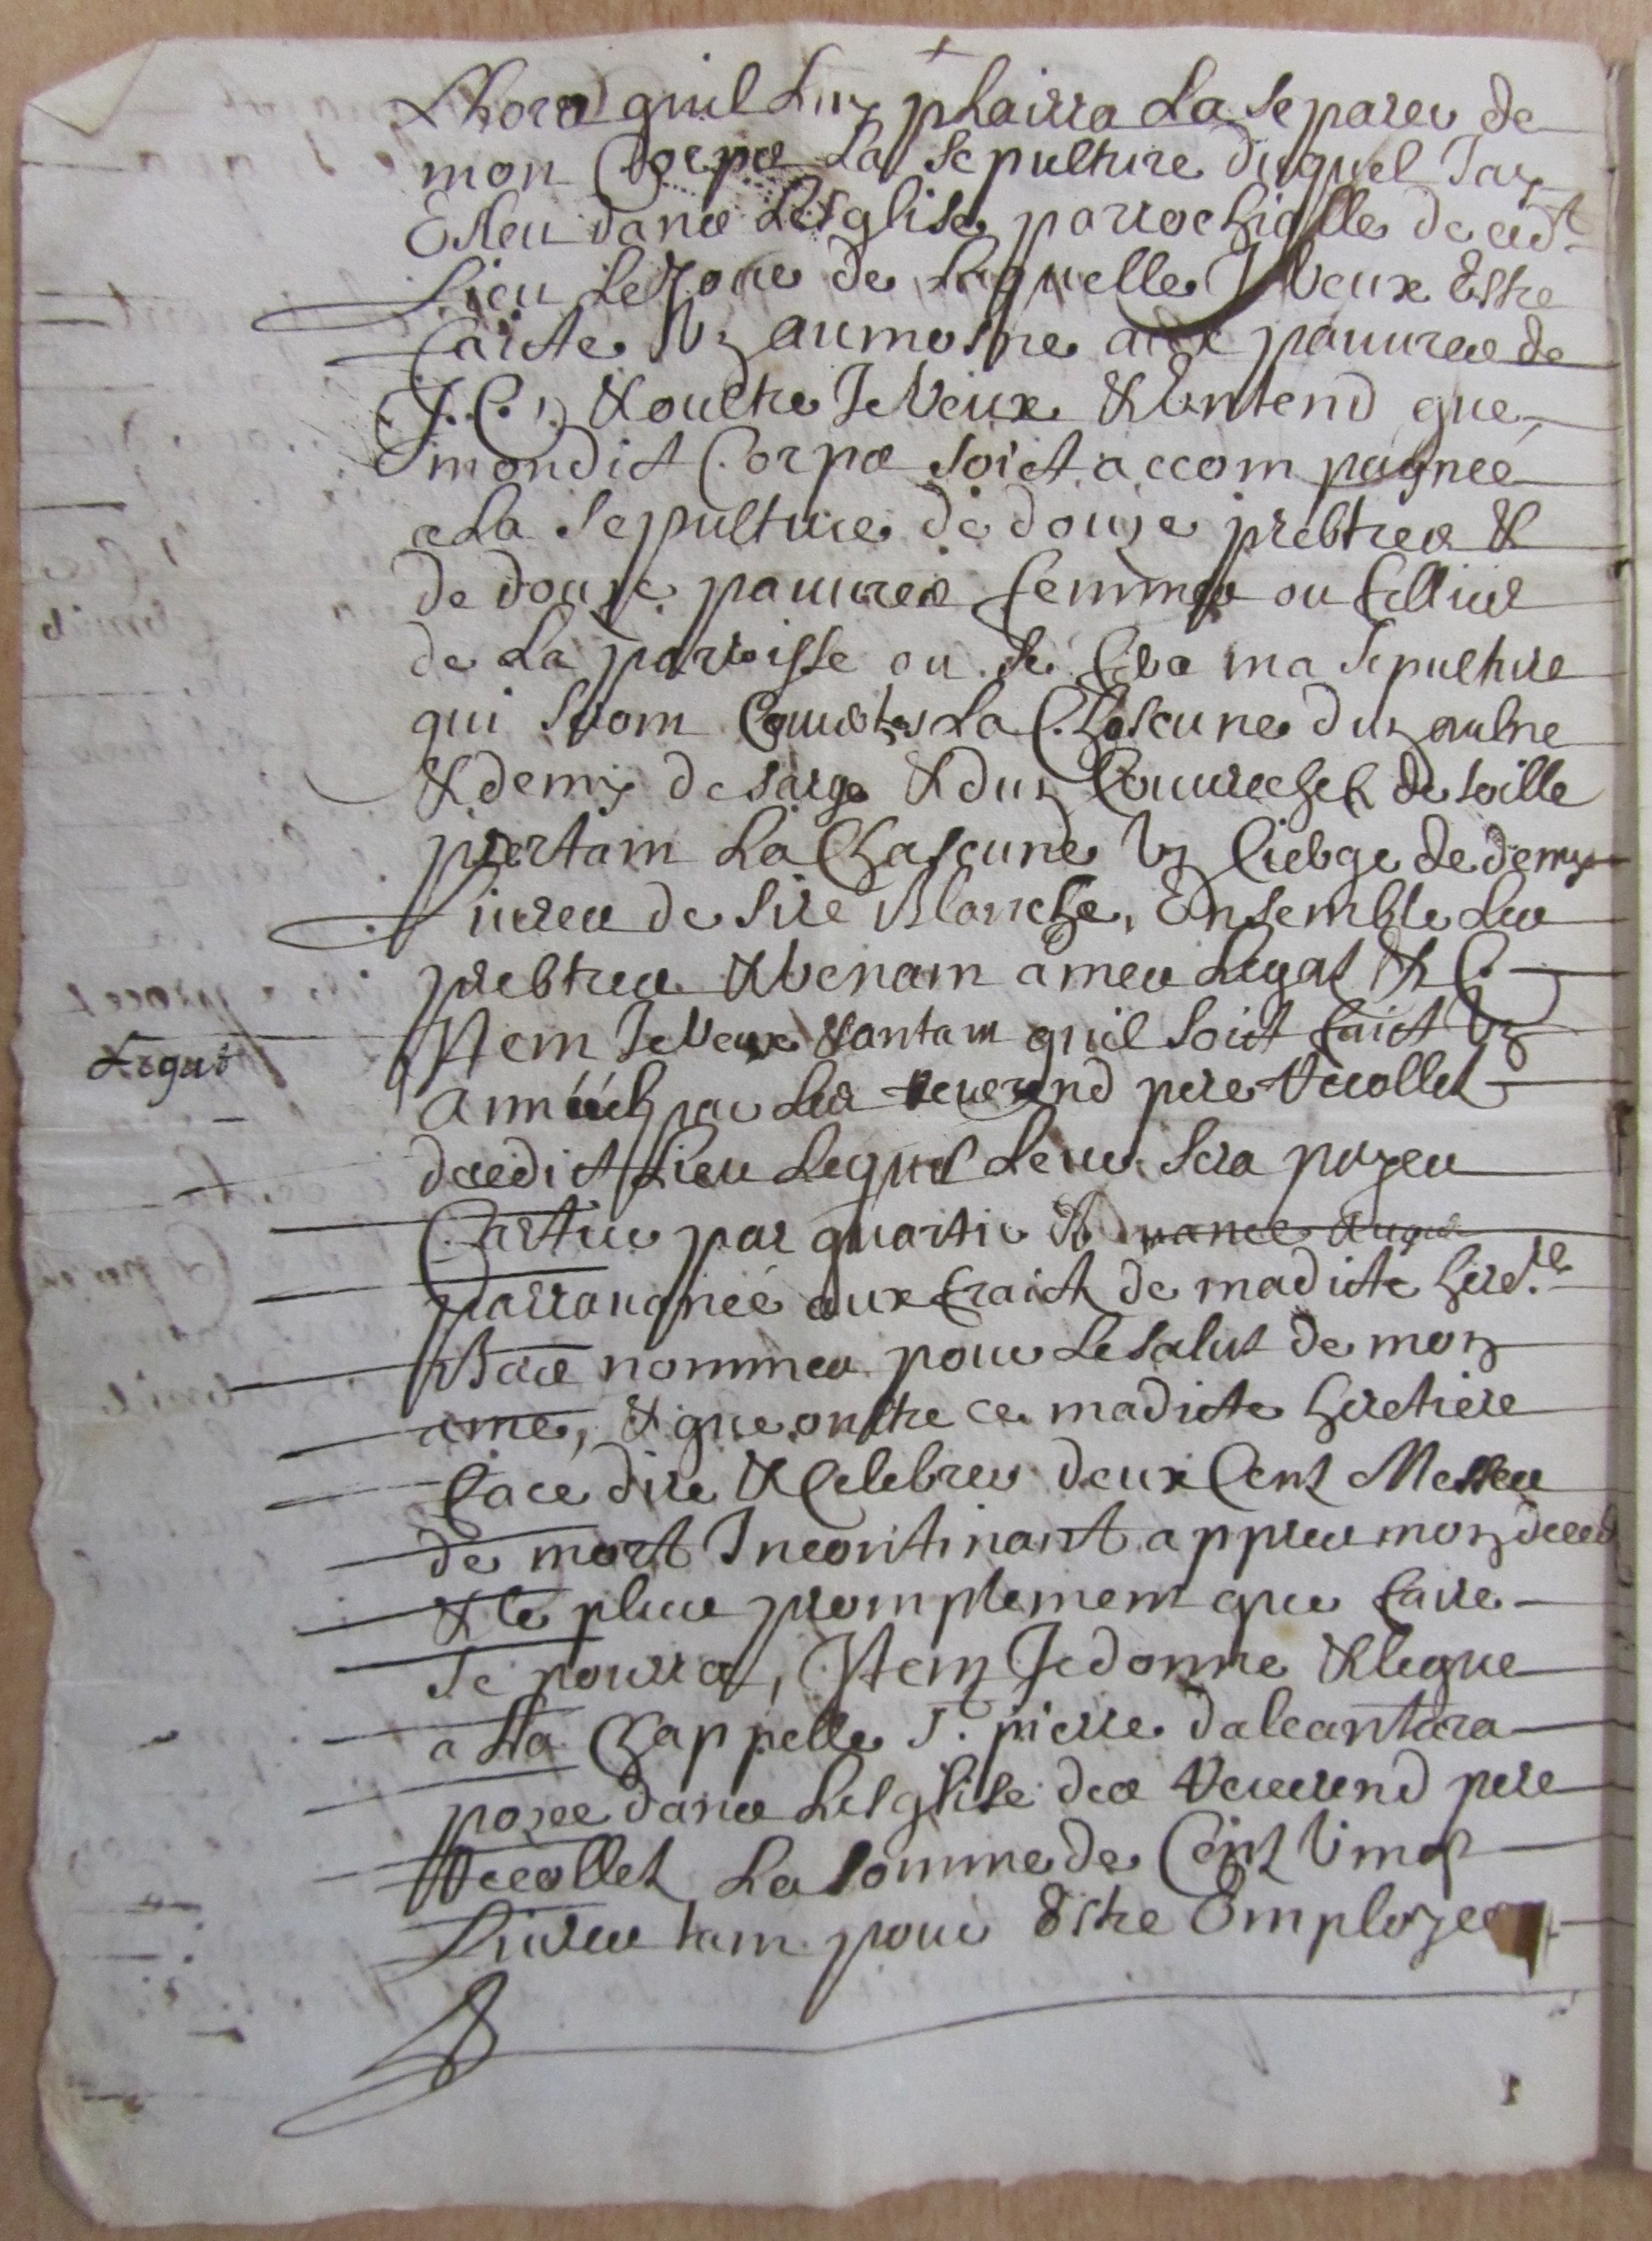 Lhors quil Luy plairra La separer de
mon Corps La sepulture duquel Jay
Esleu dans L'esglise parrochialle de cedt
Lieu Le Jour de Laquelle Je Veux Estre
faicte Vn aumosne aux pauures de
J. C. & oultre Je Veux & Entend que
mondict Corps soict accompagnée
a La sepulture de douze prebtres &
de douze pauures femmes ou fillies
de La parroisse ou se fera ma sepulture
qui seront Couuertes La Chascune dun aulne
& demy de sarge & dun Couurechef de toille
pertant La Chascune Vn Cierge de demy
Liures de sire Blanche, Ensemble Les
prebtres & Venant a mes Legat & C.
Legat
Item Je Veux & antant quil soict faict Vn
annuel par Les reuerend pere Recollet
de cedict Lieu Lequel Leur sera payen
Cartier par quartier &
parraugnée aux fraict de madicte herere
Bas nommes pour Le salut de mon
ame, & que oultre ce madicte heretiere
face dire & Celebrer deux Cent Messes
de mort Incontinant appres mon deced
& le plus promptement que faire
se pourra, Item Je donne & legue
a La Chappelle St. pierre dalcantara
pozee dans L'esglise des Reuerend pere
Recollet La somme de Cent Vingt
Liures tam pour Estre Employee